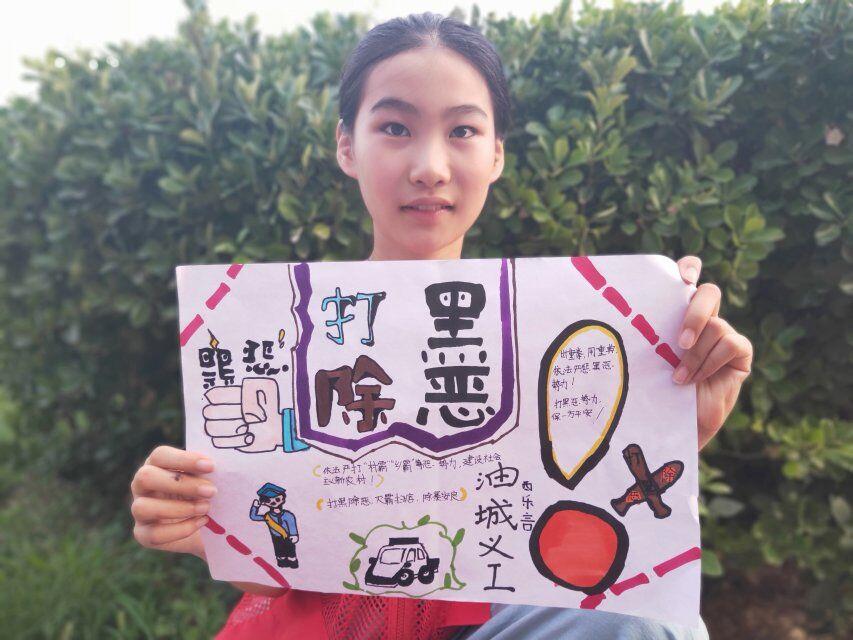 打黑
除恶
罪恶!
出重拳,用重典,
依法严惩黑恶
势力!
打黑恶势力,
保一方平安!
依法严打"村霸""乡霸"等恶势力,建设社会
主义新农村!
打黑除恶,灭霸治痞,除暴安良
油城义工
西乐言